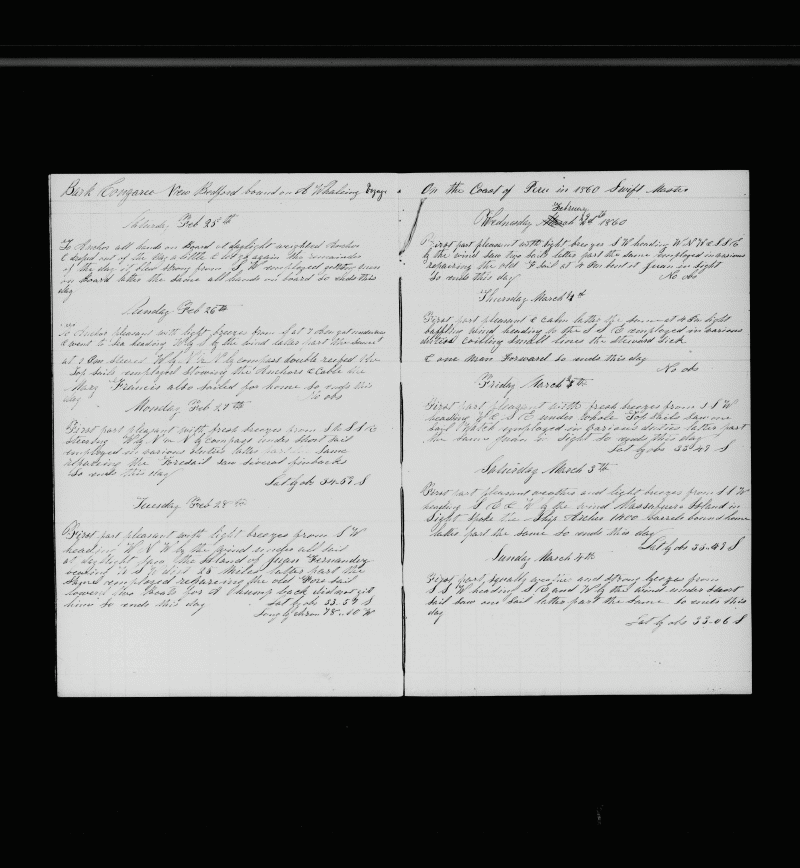 Bark Congaree New Bedford bound on A Whaleing Voyage
Saturday Feb 25th
To Anchor all hands on Board at daylight weighed Anchor
& beped out of the bay a little & let go again the remainder
of the day it blew strong from S W employed getting
on Board latter the same all hands on board so ends this
day
Sunday Feb 26th
To Anchor pleasant with light breezes from S at 7 A m got underway
& went to Sea heading W by S by the wind latter part the same
at 1 P m steered W by N by compass double reefed the
Top sails employed stowing the Anchors & Cable the
Mary Francis also sailed for home so ends this
day No obs
Monday Feb 27th
First part pleasant with fresh breezes from S & S S E
steering W by N by Compass under short sail
employed in various duties latter part the same
repairing the Foresail saw several finbacks
So ends this day
Lat by obs 34-59 S
Tuesday Feb 28th
First part pleasant with light breezes from S W
heading W N W by the wind under all sail
at daylight saw the Island of Juan Fernandez
bearing W S W dist 25 miles latter part the
same employed repareing the old Fore sail
lowered two boats for A Hump back did not git
him so ends this day Lat by obs 33-57 S
Long by chron 78-00 W
On the Coast of Peru in 1860 Swift Master
February
Wednesday 1860
First part pleasant with light breezes S W heading W N W & S S E
by the wind saw two sails latter part the same employed in various
repairing the old F sail at 4 P m Juan in sight
So ends this day No obs
Thursday March
First part pleasant & calm latter the same at 4 P m light
baffling wind heading to the S S E employed in various
duties Cooking small stores the Steward sick
& one man Forward so ends this day
No obs
Friday March
First part pleasant with fresh breezes from S S W
heading under whole Top sails saw one
sail employed in various duties latter part
the same Juan in sight so ends this day
Lat by obs 33-49 S
Saturday March 3th
First part pleasant weather and light breezes from S S W
heading S E & W by the wind Massafuero Island in
Sight Spoke the Ship Archer 1400 barrels bound home
latter part the same so ends this day
Lat by obs 33-49 S
Sunday March 4th
First part, squaly weather and strong breezes from
S S W heading S E and W by the wind under short
sail saw one sail latter part the same so ends this
day
Lat by obs 33-06 S